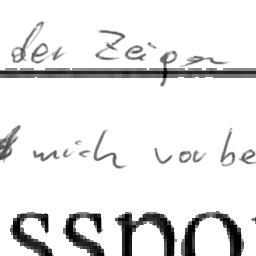 der Zeiger
mich vorbe
sspo